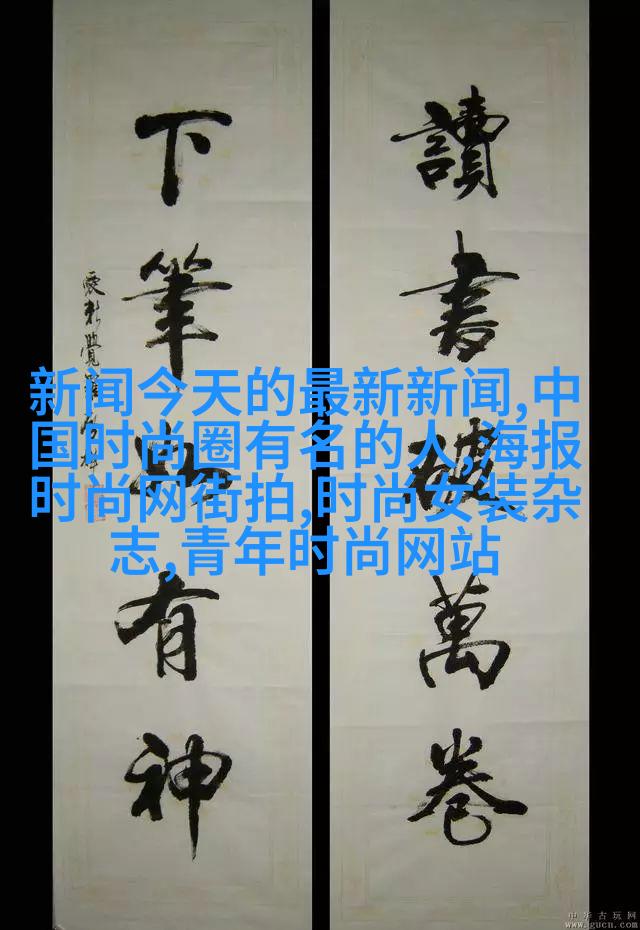 讀書破萬卷
下筆如有神
新闻今天的最新新闻,中
国时尚圈有名的人,海报
时尚网街拍,时尚女装杂
志,青年时尚网站
中华古玩网
www.gucn.com